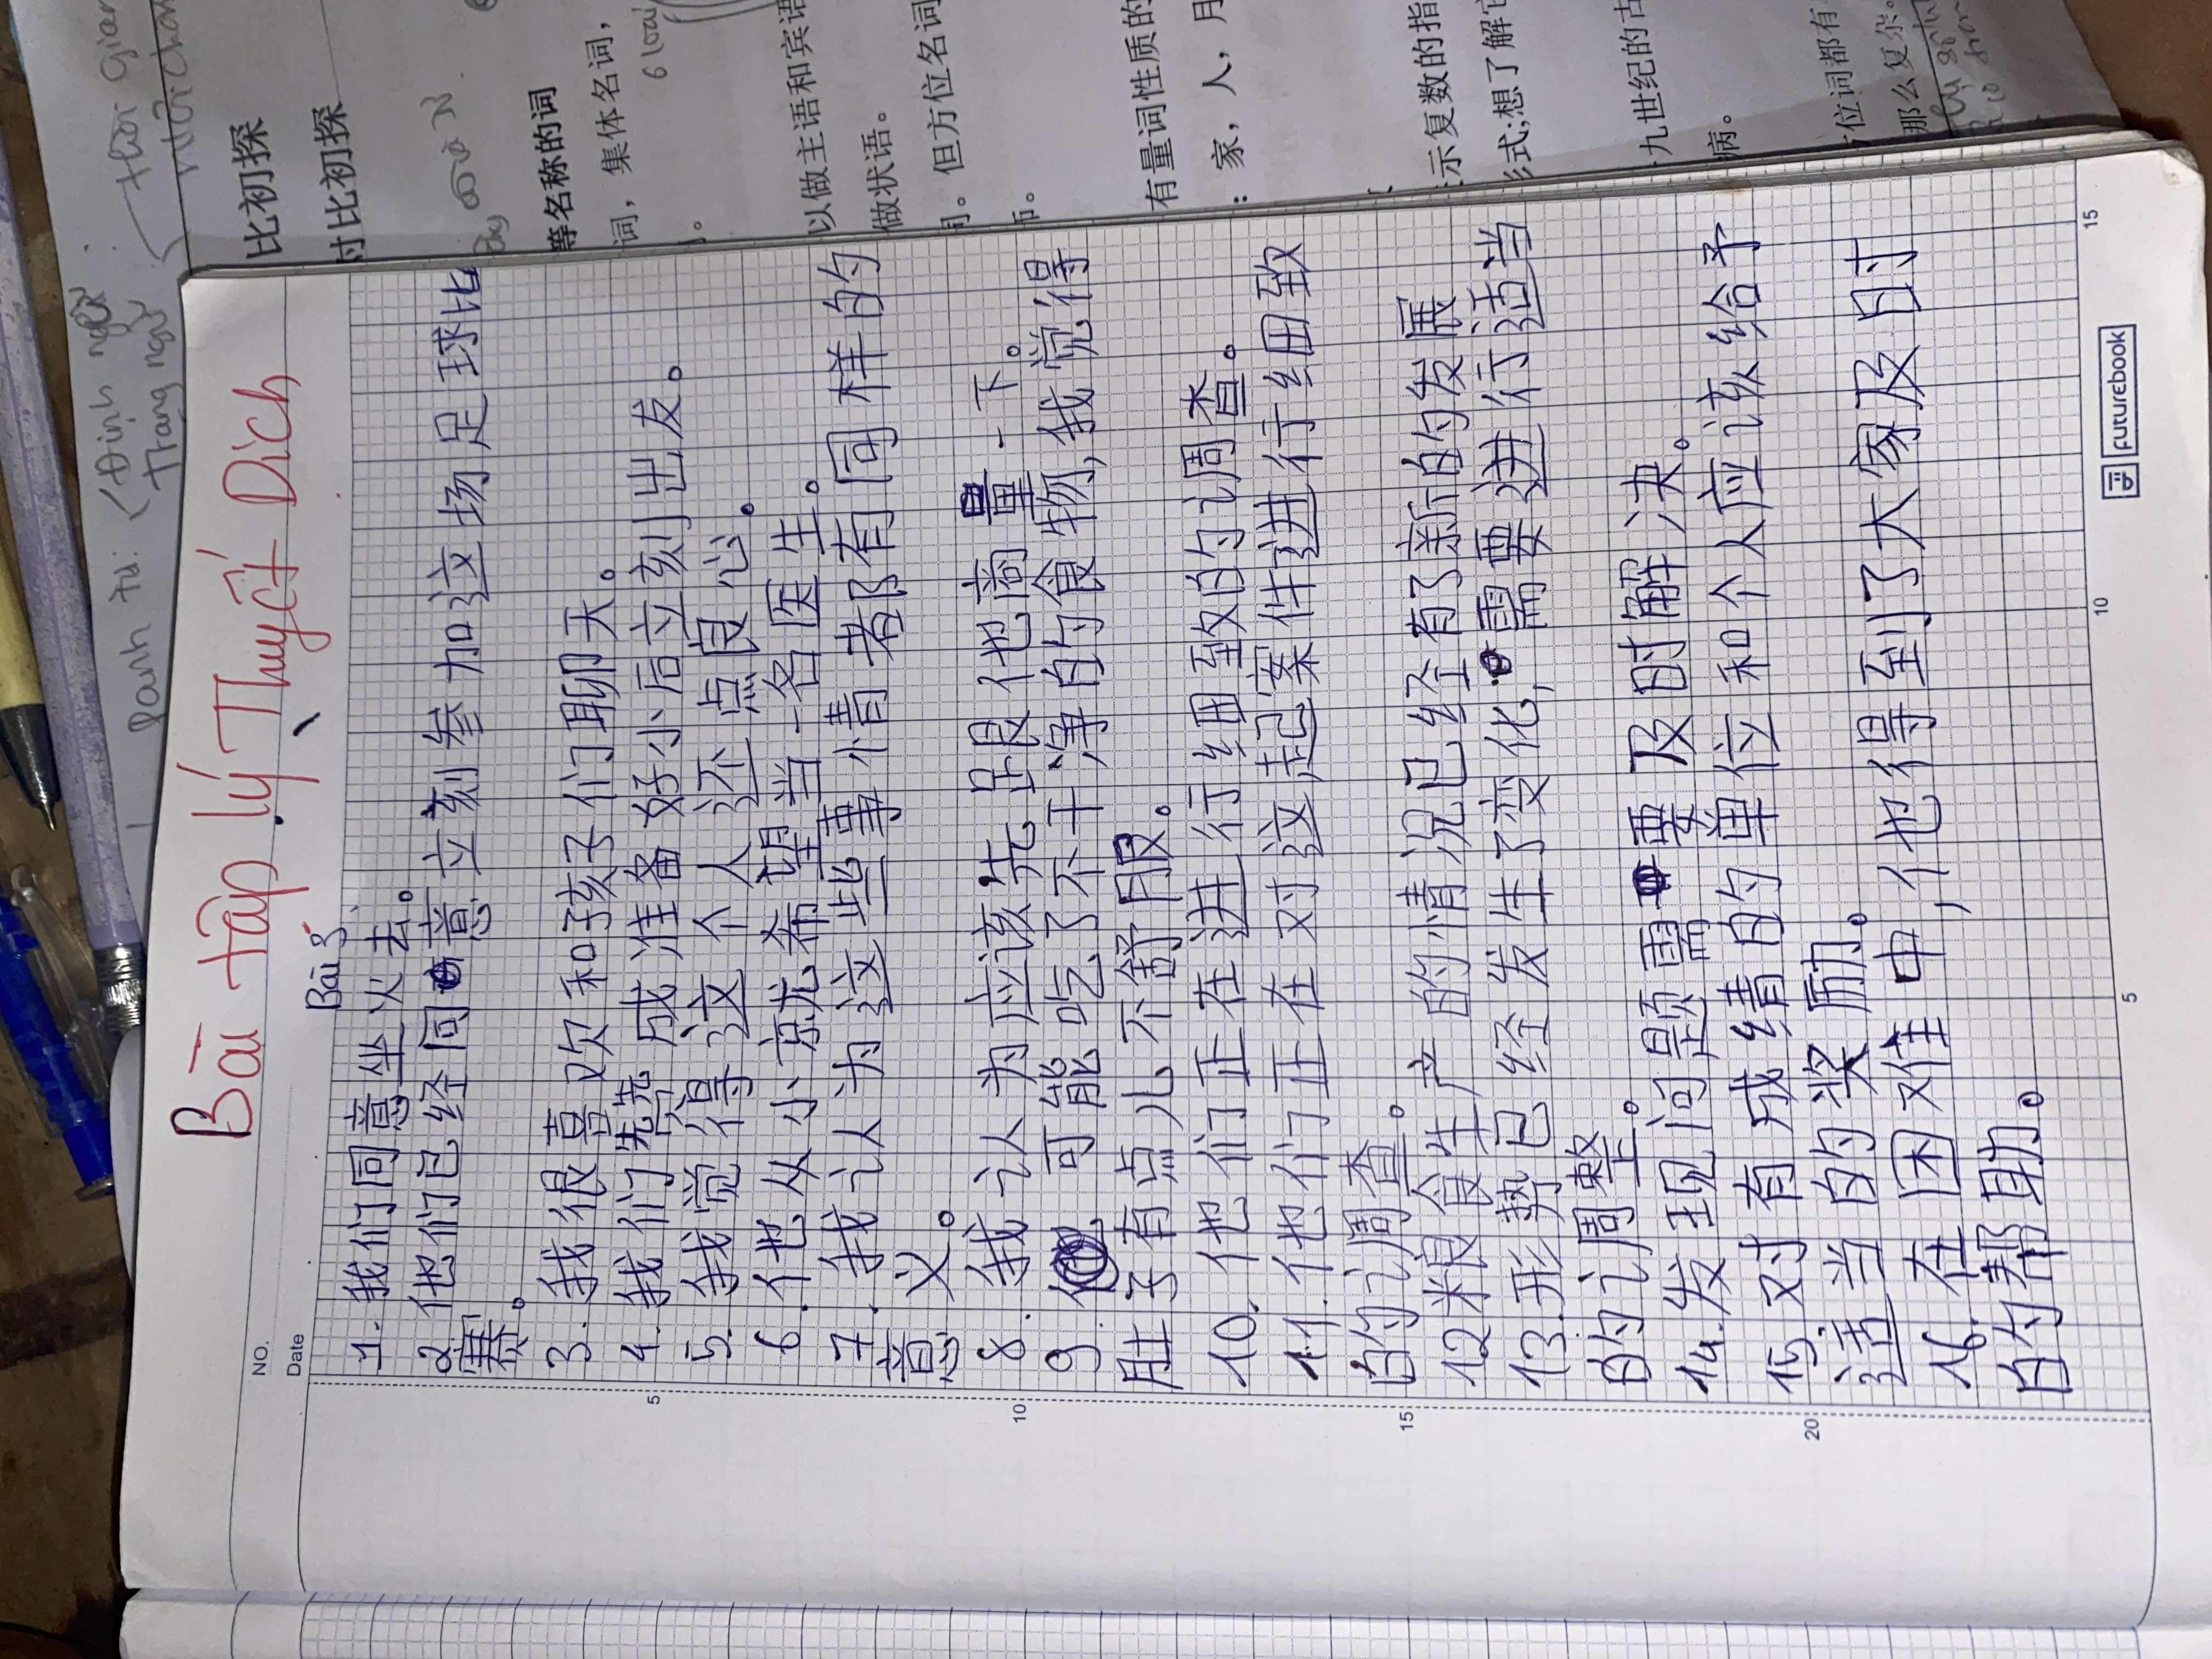 Thời gian
Nơi chốn
Danh từ: Định ngữ
Trạng ngữ
比初探
对比初探
等名称的词
词，集体名词，
6 loại
以做主语和宾语
做状语。
但方位名词
有量词性质的
：家，人，月
示复数的指
形式;想了解它
九世纪的古
病。
位词都有
那么复杂。
NO.
Date
Bài tập lý Thuyết Dịch
Bài 3
1. 我们同意坐火去。
2. 他们已经同意立刻参加这场足球比
赛。
3. 我很喜欢和孩子们聊天。
4. 我们先完成准备好小后立刻出发。
5. 我觉得这个人还不点良心。
6. 他从小就希望当一名医生。
7. 我认为这些事情者都有同样的
意义。
8. 我认为应该先跟他商量一下。
9. 可能吃了不干净的食物,我觉得
肚子有点儿不舒服。
10. 他们正在进行细致的调查。
11. 他们正在对这起案件进行细致
的调查。
12 粮食生产的情况已经有了新的发展
13. 形势已经发生了变化,需要进行适当
的调整。
14. 发现问题需要及时解决。
15. 对有成绩的单位和个人应该给予
适当的奖励。
16. 在困难中,他得到了大家及时
的帮助。
5
10
15
20
5
10
15
futurebook